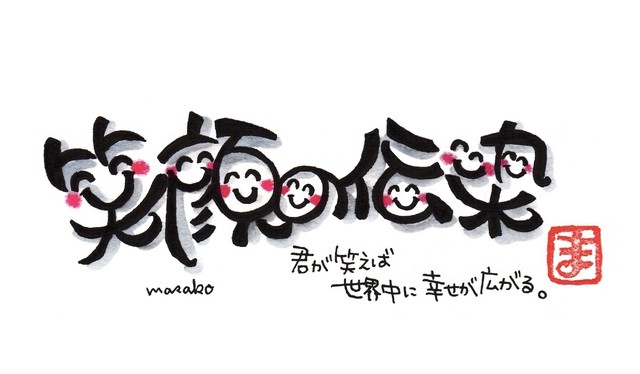 笑顔の伝染
君が笑えば
世界中に幸せが広がる。
masako
ま